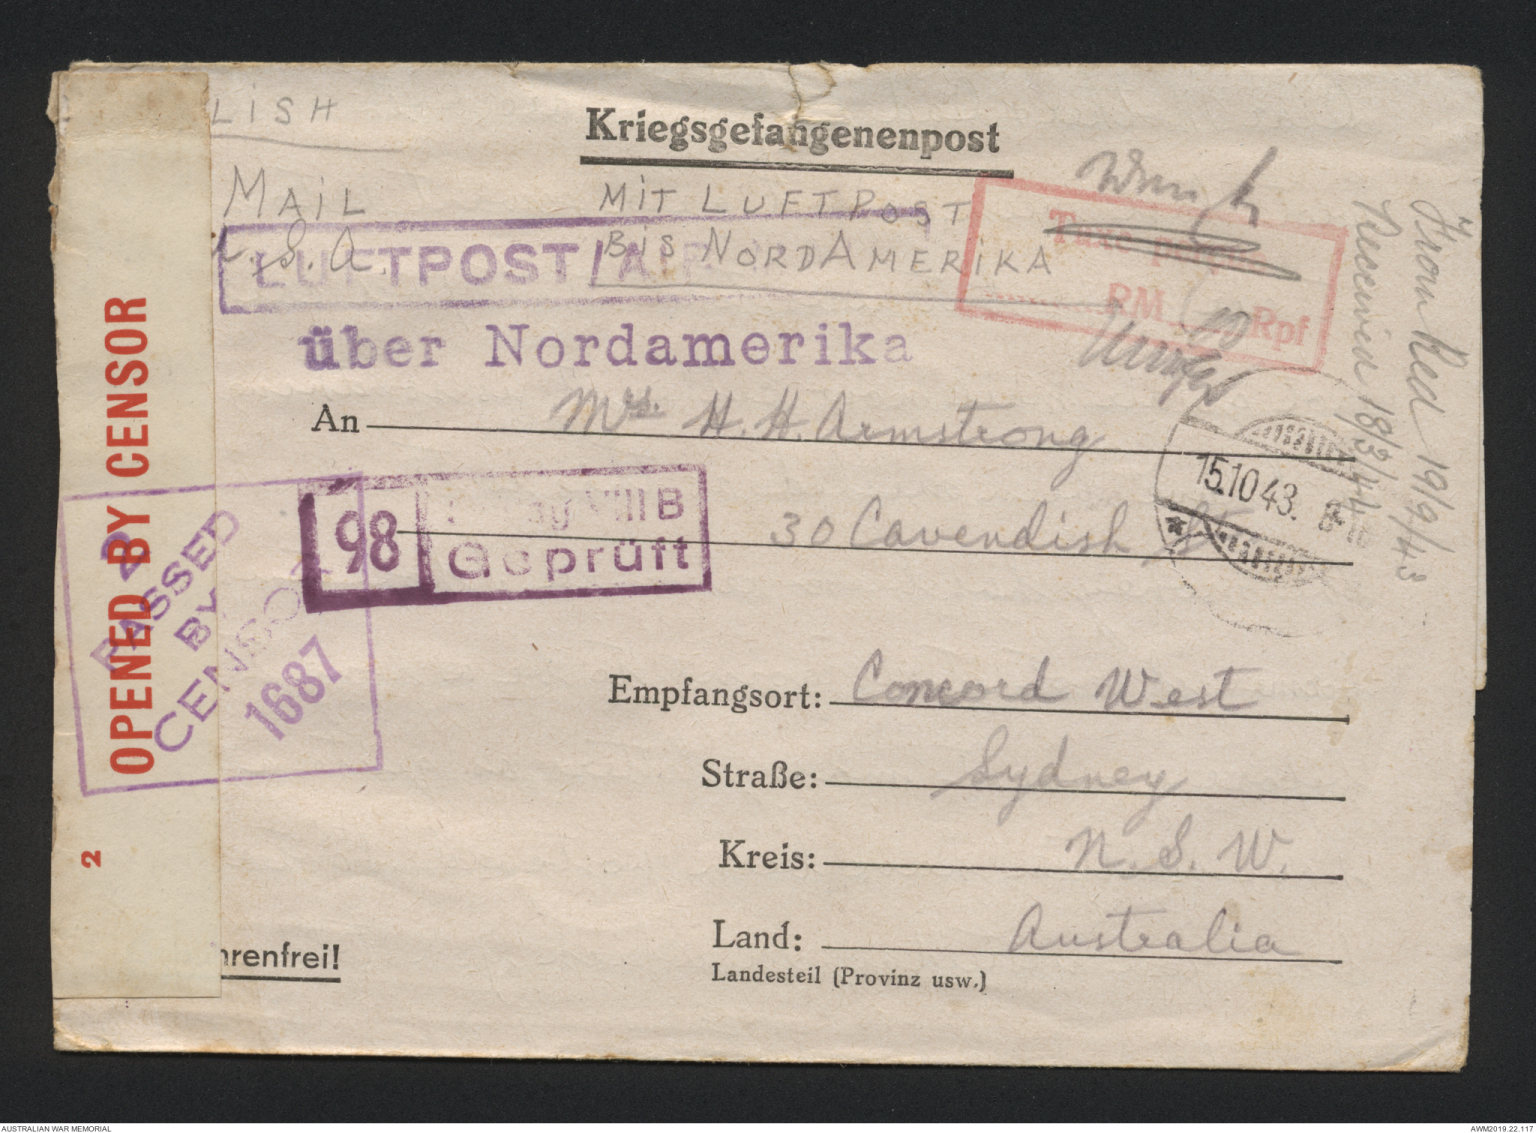 LISH
Kriegsgefangenenpost
MAIL
U.S.A.
MIT LUFTPOST
BIS NORDAMERIKA
LUFTPOST/AIR
über Nordamerika
Taxe perçue
RM Rpf
From Ned 19/9/43
Received 18/3/44
An Mrs. H. H. Armstrong
30 Cavendish St
15.10.43. 8-
98
VIII B
Geprüft
OPENED BY CENSOR
2
2
PASSED
BY
CENSOR
1687
Empfangsort: Concord West
Straße: Sydney
Kreis: N. S. W.
Land: Australia
Landesteil (Provinz usw.)
hrenfrei!
AUSTRALIAN WAR MEMORIAL
AWM2019.22.117